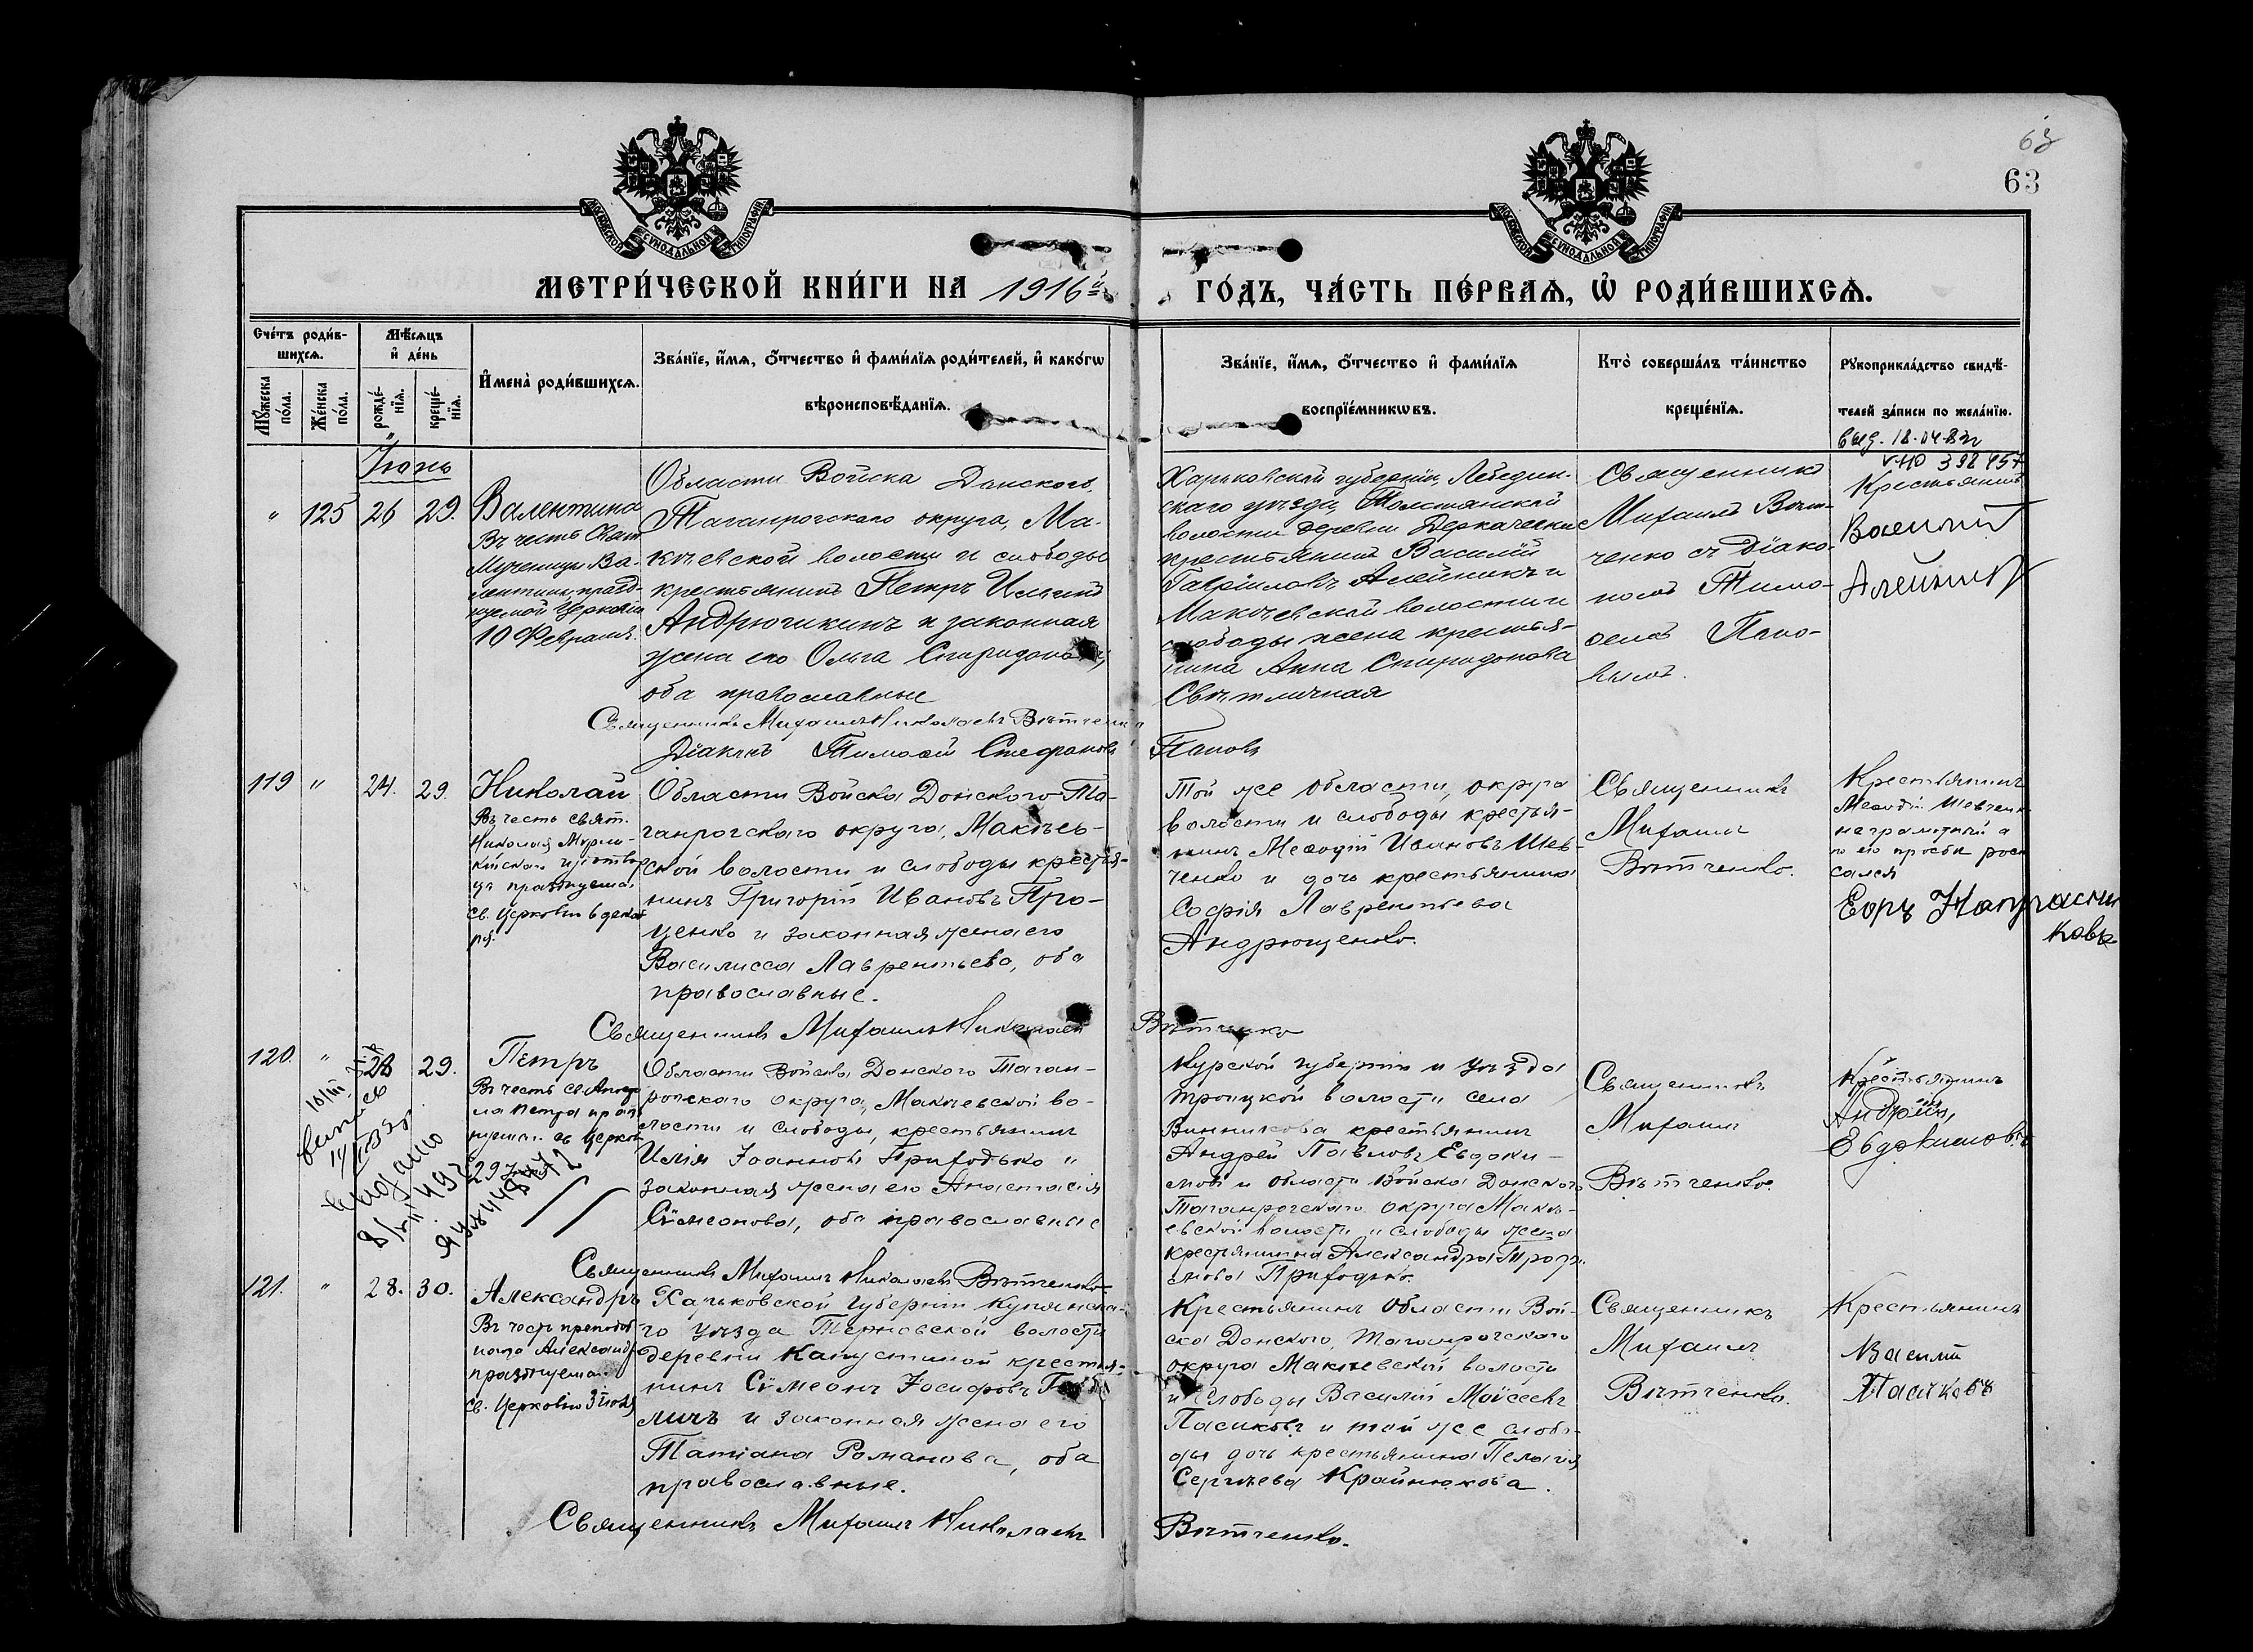 63
63
МОСКОВСКОЙ СѴНОДАЛЬНОЙ ТИПОГРАФІИ
МОСКОВСКОЙ СѴНОДАЛЬНОЙ ТИПОГРАФІИ
МЕТРИ́ЧЕСКОЙ КНИ́ГИ НА 1916й ГО́ДЪ, ЧА́СТЬ ПЕ́РВАѦ, Ѽ РОДИ́ВШИХСѦ.
Сче́тъ роди́в-
шихсѧ.
Мꙋ́жеска по́ла.
Же́нска по́ла.
Мѣ́сѧцъ
и҆ де́нь
рожде́-
нїѧ.
креще́-
нїѧ.
И҆мена̀ роди́вшихсѧ.
Зва́нїе, и҆́мѧ, ѻ҆́тчество и҆ фами́лїѧ роди́телей, и҆ како́гѡ
вѣроисповѣ́данїѧ.
Зва́нїе, и҆́мѧ, ѻ҆́тчество и҆ фами́лїѧ
воспрїе́мникѡвъ.
Кто̀ соверша́лъ та́инство
креще́нїѧ.
Рꙋкоприкла́дство свидѣ́-
телей за́писи по жела́нїю.
Іюнь
" 125 26 29.
Валентина
Въ честь Свят
Мученицы Ва-
лентины, празд-
нуемой Церковію
10 Февраля.
Области Войска Донского,
Таганрогскаго округа, Ма-
кѣевской волости и слободы
крестьянинъ Петръ Ильинъ
Андрющикинъ и законная
жена его Ольга Спиридонова,
оба православные
Священникъ Михаилъ Николаевъ Вѣтченко
Діаконъ Тимоѳей Стефановъ Поповъ
Харьковской губерніи, Лебедин-
скаго уѣзда,
волости деревни
крестьянинъ Василій
Гавріиловъ Алейникъ и
Макѣевской волости и
слободы жена крестья-
нина Анна Спиридонова
Свѣтличная
Священникъ
Михаилъ Вѣт-
ченко съ Діако-
номъ Тимо-
ѳемъ Попо-
вымъ.
выд. 18.04.83г
Крестьянинъ
Василий
Алейникъ
119 " 24. 29.
Николай
Въ честь свят.
Николая Мирли-
кійскаго чудотвор
ца празднуема.
св. Церковью 6 декаб
ря.
Области Войска Донского Та-
ганрогскаго округа, Макѣев-
ской волости и слободы крестья-
нинъ Григорій Ивановъ Про-
ценко и законная жена его
Василисса Лаврентьева, оба
православные.
Священникъ Михаилъ Николаевъ Вѣтченко
Той же области, округа
волости и слободы крестья-
нинъ Меѳодій Ивановъ Шев-
ченко и дочь крестьянина
Софія Лаврентьева
Андрющенко.
Священникъ
Михаилъ
Вѣтченко.
Крестьянинъ
Меѳодій Шевченко
неграмотный а
по его просьбѣ роспи
сался
Егоръ Напрасни
ковъ
120. " 28 29.
Петръ
Въ честь св. Апосто
ла Петра празд
нуемаго св. Церков
29 Іюня
Области Войска Донского Таган-
рогскаго округа, Макѣевской во-
лости и слободы, крестьянинъ
Илія Іоанновъ Приходько и
законная жена его Анастасія
Сѵмеонова, оба православные
Священникъ Михаилъ Николаевъ Вѣтченко
Курской губерніи и уѣзда
Троицкой волости села
Винникова крестьянинъ
Андрей Павловъ Евдоки-
мовъ и Области Войска Донского
Таганрогскаго округа Макѣ-
евской волости и слободы жена
крестьянина Александра Троѳи-
мова Приходько.
Священникъ
Михаилъ
Вѣтченко.
Крестьянинъ
Андрѣй,
Евдокимовъ
121. " 28. 30.
Александръ
Въ честь преподоб
наго Александра
празднуема.
св. Церковью 3 іюля
Харьковской губерніи Купянска-
го уѣзда Терновской волости
деревни Капустиной крестья-
нинъ Сѵмеонъ Іосифовъ
личъ и законная жена его
Татіана Романова, оба
православные.
Священникъ Михаилъ Николаевъ Вѣтченко.
Крестьянинъ Области Вой-
ска Донского, Таганрогскаго
округа Макѣевской волости
и слободы Василій Моѵсеевъ
Пасиковъ и той же слобо-
ды дочь крестьянина Пелагія
Сергѣева Крайнюкова.
Священникъ
Михаилъ
Вѣтченко.
Крестьянинъ
Василий
Пасиковъ